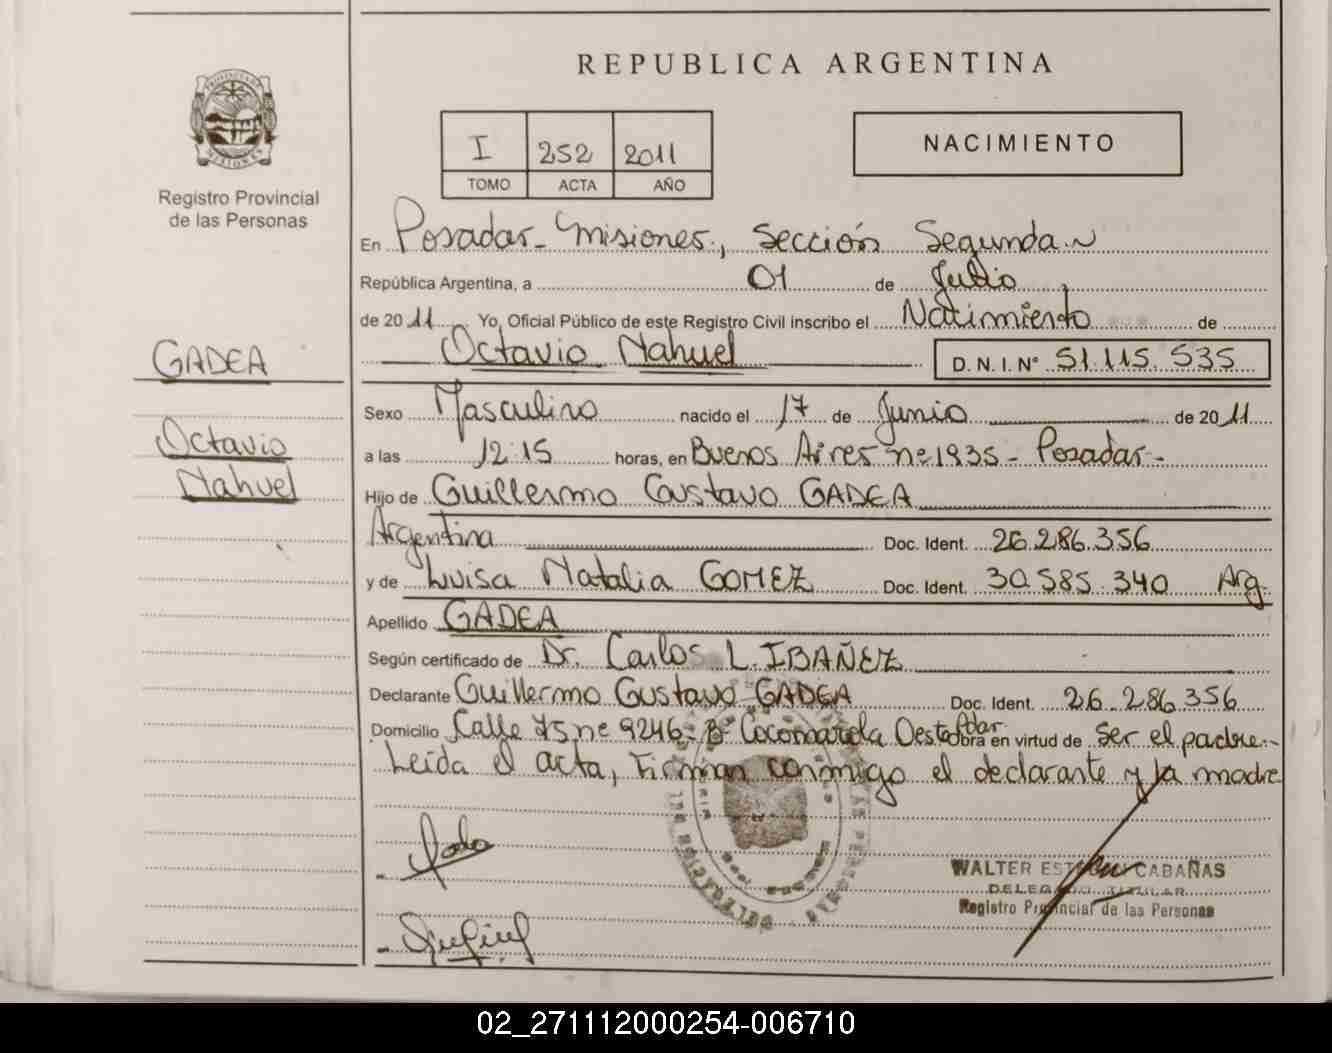 REPUBLICA ARGENTINA
I 252 2011
TOMO ACTA AÑO
NACIMIENTO
PROVINCIA DE MISIONES
Registro Provincial
de las Personas
GADEA
Octavio
Nahuel
En Posadas - Misiones, Sección Segunda
República Argentina, a 01 de Julio
de 2011 Yo, Oficial Público de este Registro Civil inscribo el Nacimiento de
Octavio Nahuel D.N.I. Nº 51.115.535
Sexo Masculino nacido el 17 de Junio de 2011
a las 12:15 horas, en Buenos Aires nº 1935 - Posadas -
Hijo de Guillermo Gustavo GADEA
Argentina Doc. Ident. 26.286.356
y de Luisa Natalia GOMEZ Doc. Ident. 30.585.340 Arg.
Apellido GADEA
Según certificado de Dr. Carlos L. IBAÑEZ
Declarante Guillermo Gustavo GADEA Doc. Ident. 26.286.356
Domicilio Calle 75 nº 9246 - Bº Cocomarola Oeste Pdas. Obra en virtud de ser el padre -
Leída el acta, Firman conmigo el declarante y la madre
WALTER CABAÑAS
DELEGADO TITULAR
Registro Provincial de las Personas
02_271112000254-006710